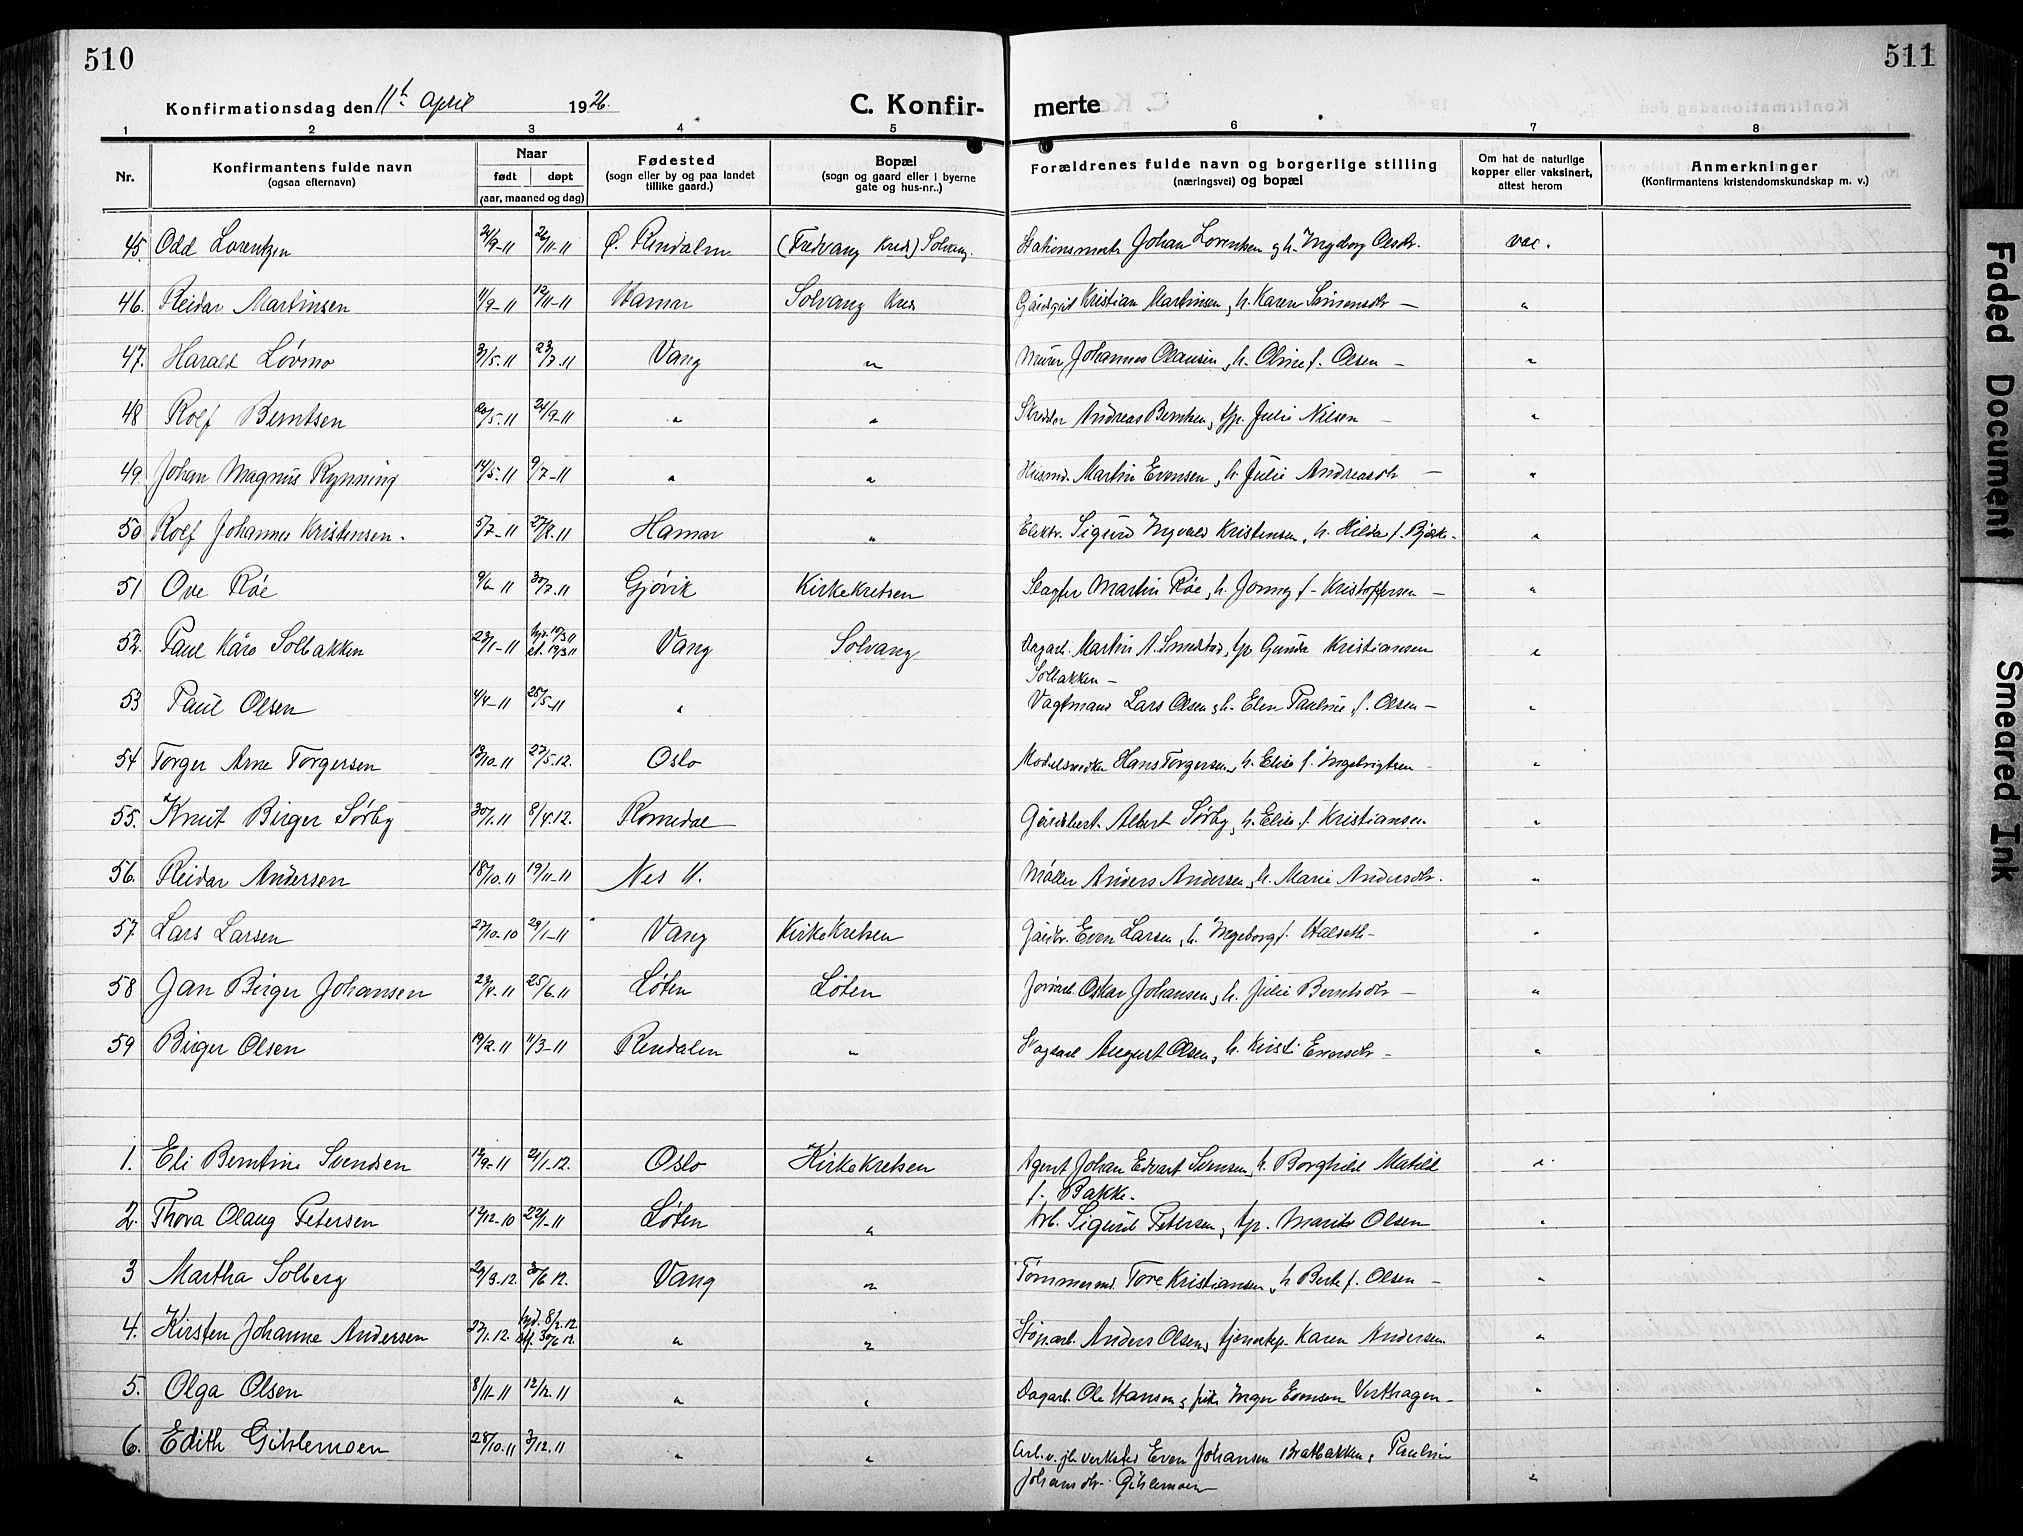 510
511
Konfirmationsdag den 11te April 1926.
C. Konfirmerte
1 2 3 4 5 6 7 8
Nr. Konfirmantens fulde navn (ogsaa efternavn) Naar født døpt (aar, maaned og dag) Fødested (sogn eller by og paa landet tillike gaard.) Bopæl (sogn og gaard eller i byerne gate og hus-nr..) Forældrenes fulde navn og borgerlige stilling (næringsvei) og bopæl Om hat de naturlige kopper eller vaksinert, attest herom Anmerkninger (Konfirmantens kristendomskundskap m. v.)
45. Odd Lorentzen 24/9-11 26/11-11 Ø. Rendalen (Fredvang Kreds) Solvang. Stationsmester Johan Lorentzen, h. Ingeborg Olsdtr. vac.
46. Reidar Martinsen 11/9-11 12/11-11 Hamar Solvang Kres Kristian Martinsen, h. Karen Simensdtr — "
47. Harald Løvmo 31/5-11 23/7-11 Vang " Murer Johannes Olausen, h. Oline f. Olsen — "
48 Rolf Berntsen 20/5-11 24/9-11 " " Skrædder Andreas Berntsen, tjp. Julie Nilsen — "
49. Johan Magnus Rynning 14/5-11 9/7-11 " " Husmd. Martin Evensen, h. Julie Andreasdtr — "
50 Rolf Johannes Kristensen. 5/7-11 27/8-11 Hamar " Elektr. Sigurd Ingvald Kristensen, h. Hilda f. "
51 Ove Röe 9/6-11 30/7-11 Gjövik Kirkekretsen Slagter Martin Röe, h. Jonny f. Kristoffersen — "
52. Paul Kåre Solbakken 23/1-11 hjd. 10/3 11 st. 19/3 11 Vang Solvang Dagarb. Martin A. Smedstad, tp Gunda Kristiansen Solbakken — "
53 Paul Olsen 4/4-11 25/5-11 " Vagtmand Lars Olsen, h. Elen Pauline f. Olsen — "
54 Torger Arne Torgersen 13/10-11 27/5.12. Oslo Modelsnedker Hans Torgersen, h. Elise f. Ingebrigtsen — "
55. Knut Birger Sörby 30/1.11 8/4.12. Romedal Albert Sörby, h. Elise f. Kristiansen "
56. Reidar Andersen 18/10.11 19/11-11 Nes H. Møller Anders Andersen, h. Marie Andersdtr. "
57. Lars Larsen 27/10-10 29/1-11 " Vang Kirkekretsen Gårdbr. Even Larsen, h. Ingeborg f. Halseth — "
58 Jan Birger Johansen 23/4-11 25/6.11 Löten Löten Jernarb. Oskar Johansen, h. Julie Berntsdtr — "
59 Birger Olsen 19/2.11 11/3-11 Rendalen " Skogsarb August Olsen, h. Kirsti Evensdtr — "
1. Eli Berntine Svendsen 19/9-11 21/1-12. Oslo Kirkekretsen Agent Johan Edvart Svensen, h. Borghild Matilde f. Bakke. "
2. Thora Olaug Petersen 19/12-10 22/1-11 Löten " Arb. Sigurd Petersen, tp. Marthe Olsen "
3 Martha Solberg 29/3.12. 30/6 12. Vang " Tømmermd. Tore Kristiansen, h Berte f. Olsen — "
4. Kirsten Johanne Andersen 27/1.12. hjd. 8/2.12. st. 30/6 12. " " Støp.arb. Anders Olsen, Karen Andersen "
5. Olga Olsen 8/11-11 12/12.11 " " Dagarb. Ole Hansen, Inger Evensen Vesthagen — "
6. Edith Gihlemoen 28/10.11 3/12.11 " " Arb. v. jb verksted Even Johansen Bratbakken, Pauline Johansdtr. Gihlemoen "
Faded Document
Smeared Ink